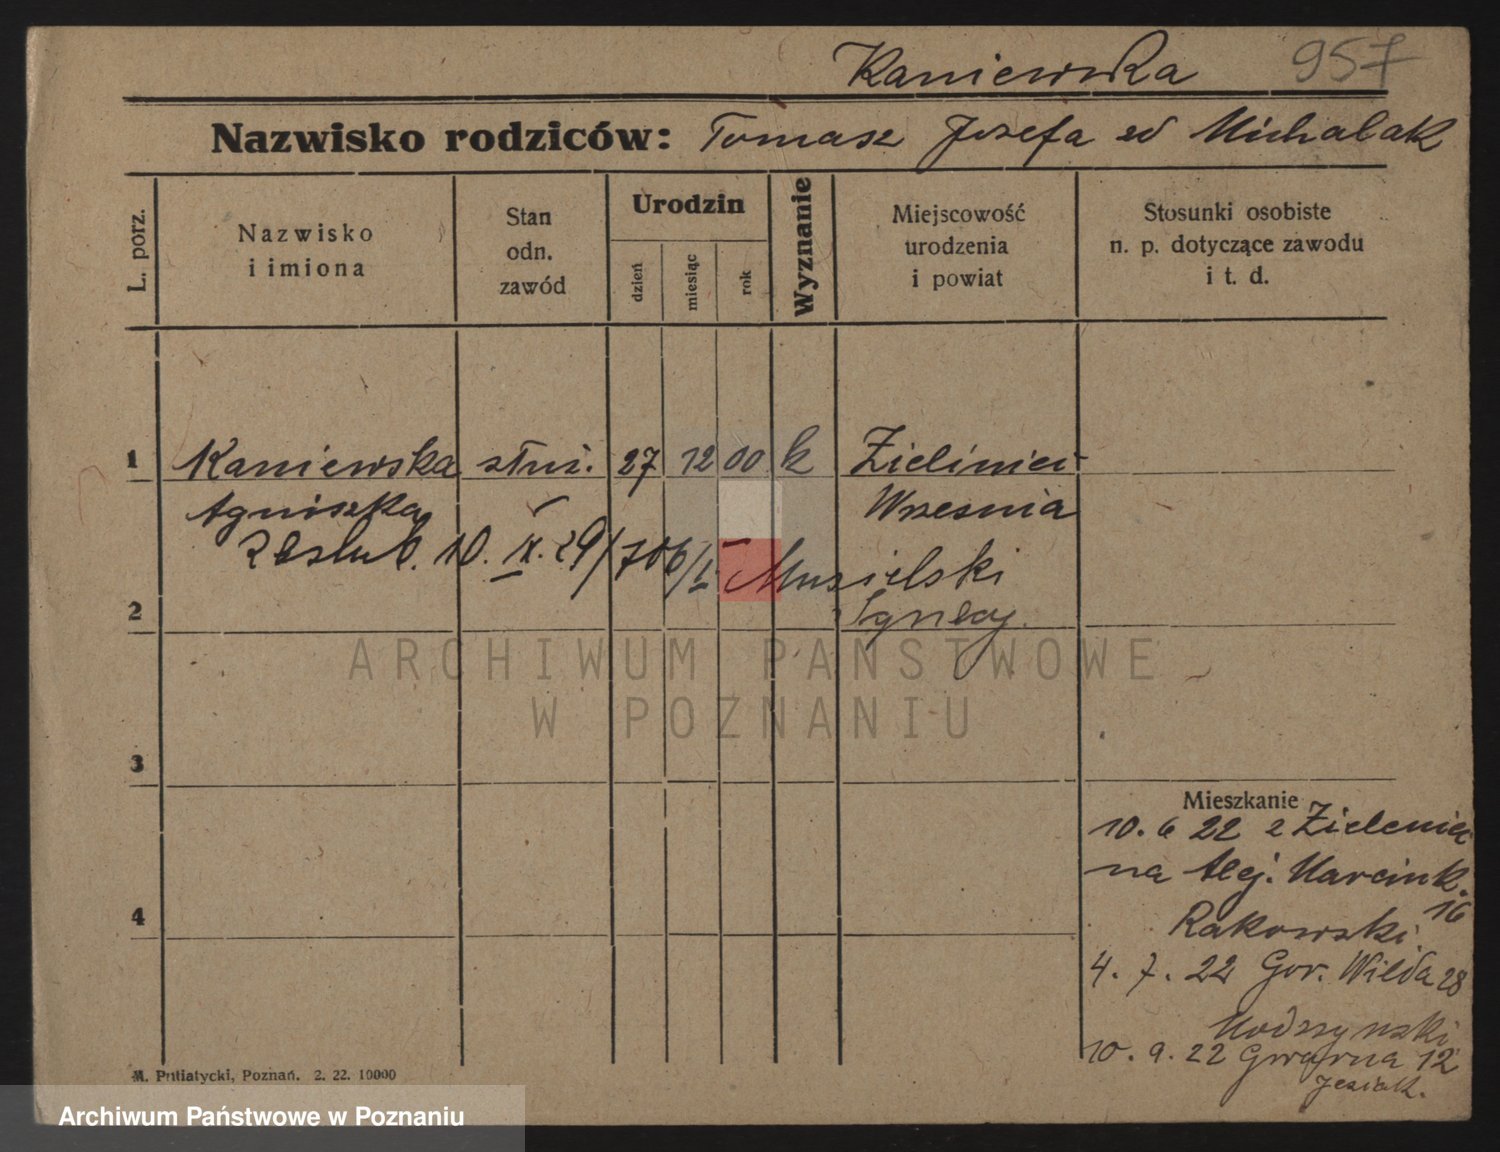 Kaniewska 957
Nazwisko rodziców: Tomasz Józefa zd Michalak
L. porz.
Nazwisko
i imiona
Stan
odn.
zawód
Urodzin
dzień
miesiąc
rok
Wyznanie
Miejscowość
urodzenia
i powiat
Stosunki osobiste
n. p. dotyczące zawodu
i t. d.
1 Kaniewska służ. 27 12 00 k Zieliniec
Agnieszka Wrzesnia
zaslub. 10. IX. 29/706/I Musielski
2 Ignacy.
3
4
Mieszkanie
10. 6 22 z Zieleniec
na Alej. Marcink.
16
Rakowski
4. 7. 22 Gor. Wilda 28
10. 9. 22 Gwarna 12
Jeziak.
M. Putiatycki, Poznań. 2. 22. 10000
ARCHIWUM PAŃSTWOWE
W POZNANIU
Archiwum Państwowe w Poznaniu